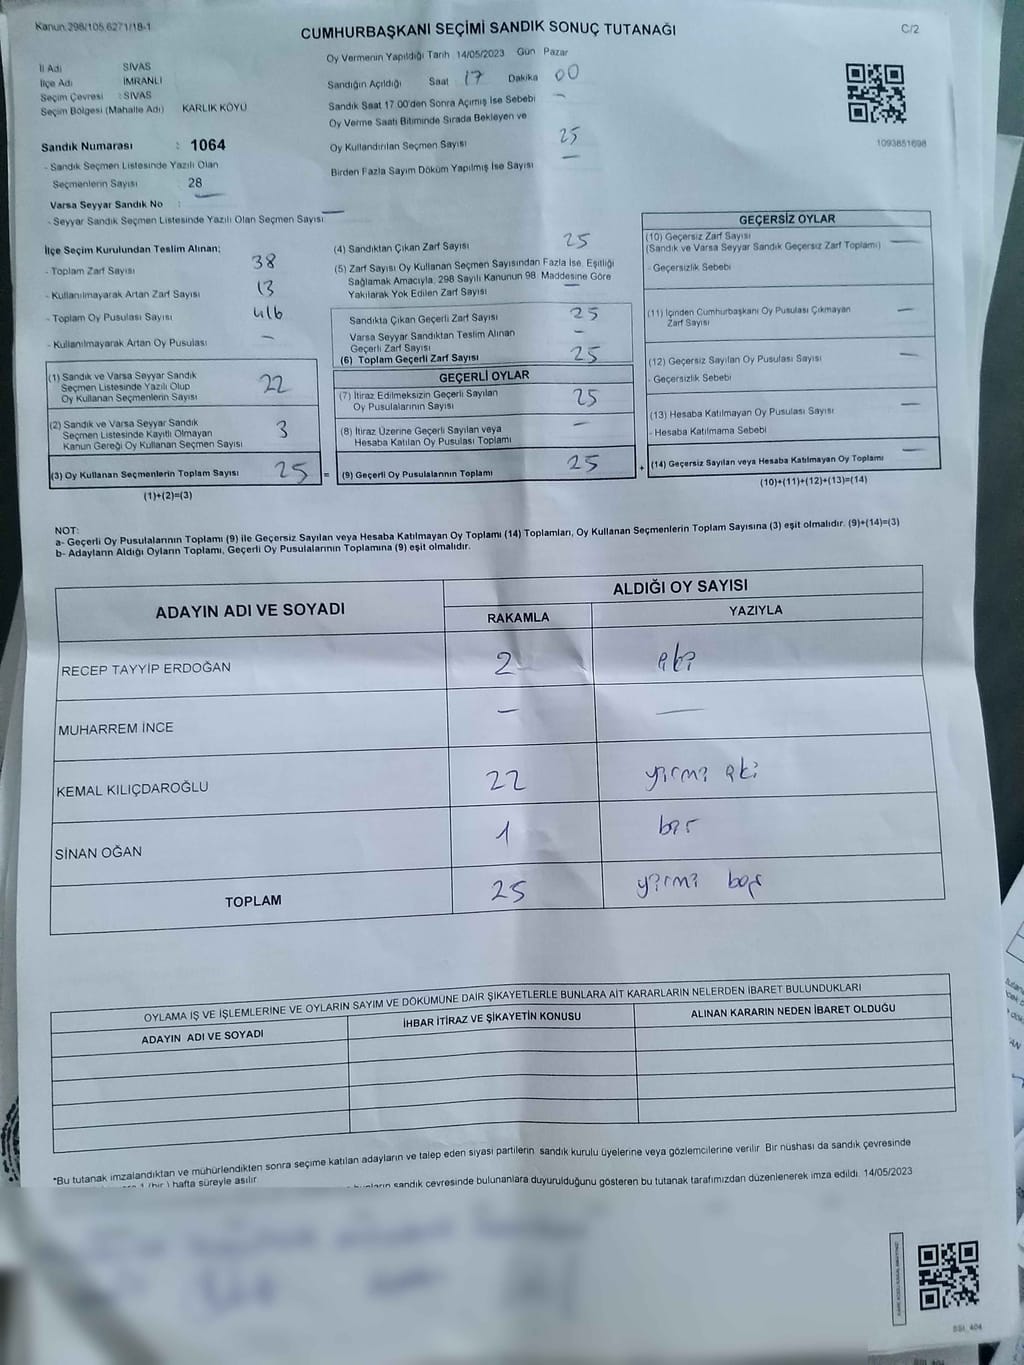 Kanun.298/105,6271/18-1
CUMHURBAŞKANI SEÇİMİ SANDIK SONUÇ TUTANAĞI
C/2
Oy Vermenin Yapıldığı Tarih 14/05/2023 Gün Pazar
İl Adı SİVAS
İlçe Adı İMRANLI
Seçim Çevresi : SİVAS
Seçim Bölgesi (Mahalle Adı) KARLIK KÖYÜ
Sandık Numarası : 1064
- Sandık Seçmen Listesinde Yazılı Olan
Seçmenlerin Sayısı 28
Varsa Seyyar Sandık No : —
- Seyyar Sandık Seçmen Listesinde Yazılı Olan Seçmen Sayısı —
Sandığın Açıldığı Saat 17 Dakika 00
Sandık Saat 17.00'den Sonra Açımış İse Sebebi —
Oy Verme Saati Bitiminde Sırada Bekleyen ve
Oy Kullandırılan Seçmen Sayısı 25
Birden Fazla Sayım Döküm Yapılmış İse Sayısı —
1093851698
İlçe Seçim Kurulundan Teslim Alınan;
- Toplam Zarf Sayısı 38
- Kullanılmayarak Artan Zarf Sayısı 13
- Toplam Oy Pusulası Sayısı 416
- Kullanılmayarak Artan Oy Pusulası —
(1) Sandık ve Varsa Seyyar Sandık
Seçmen Listesinde Yazılı Olup
Oy Kullanan Seçmenlerin Sayısı 22
(2) Sandık ve Varsa Seyyar Sandık
Seçmen Listesinde Kayıtlı Olmayan
Kanun Gereği Oy Kullanan Seçmen Sayısı 3
(3) Oy Kullanan Seçmenlerin Toplam Sayısı 25 =
(1)+(2)=(3)
(4) Sandıktan Çıkan Zarf Sayısı 25
(5) Zarf Sayısı Oy Kullanan Seçmen Sayısından Fazla İse, Eşitliği
Sağlamak Amacıyla, 298 Sayılı Kanunun 98. Maddesine Göre
Yakılarak Yok Edilen Zarf Sayısı —
Sandıkta Çıkan Geçerli Zarf Sayısı 25
Varsa Seyyar Sandıktan Teslim Alınan
Geçerli Zarf Sayısı —
(6) Toplam Geçerli Zarf Sayısı 25
GEÇERLİ OYLAR
(7) İtiraz Edilmeksizin Geçerli Sayılan
Oy Pusulalarının Sayısı 25
(8) İtiraz Üzerine Geçerli Sayılan veya
Hesaba Katılan Oy Pusulası Toplamı —
(9) Geçerli Oy Pusulalarının Toplamı 25 +
GEÇERSİZ OYLAR
(10) Geçersiz Zarf Sayısı
(Sandık ve Varsa Seyyar Sandık Geçersiz Zarf Toplamı) —
- Geçersizlik Sebebi
(11) İçinden Cumhurbaşkanı Oy Pusulası Çıkmayan
Zarf Sayısı —
(12) Geçersiz Sayılan Oy Pusulası Sayısı —
- Geçersizlik Sebebi
(13) Hesaba Katılmayan Oy Pusulası Sayısı —
- Hesaba Katılmama Sebebi
(14) Geçersiz Sayılan veya Hesaba Katılmayan Oy Toplamı —
(10)+(11)+(12)+(13)=(14)
NOT:
a- Geçerli Oy Pusulalarının Toplamı (9) ile Geçersiz Sayılan veya Hesaba Katılmayan Oy Toplamı (14) Toplamları, Oy Kullanan Seçmenlerin Toplam Sayısına (3) eşit olmalıdır. (9)+(14)=(3)
b- Adayların Aldığı Oyların Toplamı, Geçerli Oy Pusulalarının Toplamına (9) eşit olmalıdır.
ADAYIN ADI VE SOYADI ALDIĞI OY SAYISI
RAKAMLA YAZIYLA
RECEP TAYYİP ERDOĞAN 2 iki
MUHARREM İNCE — —
KEMAL KILIÇDAROĞLU 22 yirmi iki
SİNAN OĞAN 1 bir
TOPLAM 25 yirmi beş
OYLAMA İŞ VE İŞLEMLERİNE VE OYLARIN SAYIM VE DÖKÜMÜNE DAİR ŞİKAYETLERLE BUNLARA AİT KARARLARIN NELERDEN İBARET BULUNDUKLARI
ADAYIN ADI VE SOYADI İHBAR İTİRAZ VE ŞİKAYETİN KONUSU ALINAN KARARIN NEDEN İBARET OLDUĞU
*Bu tutanak imzalandıktan ve mühürlendikten sonra seçime katılan adayların ve talep eden siyasi partilerin sandık kurulu üyelerine veya gözlemcilerine verilir. Bir nüshası da sandık çevresinde
1 (bir) hafta süreyle asılır.
sandık çevresinde bulunanlara duyurulduğunu gösteren bu tutanak tarafımızdan düzenlenerek imza edildi. 14/05/2023